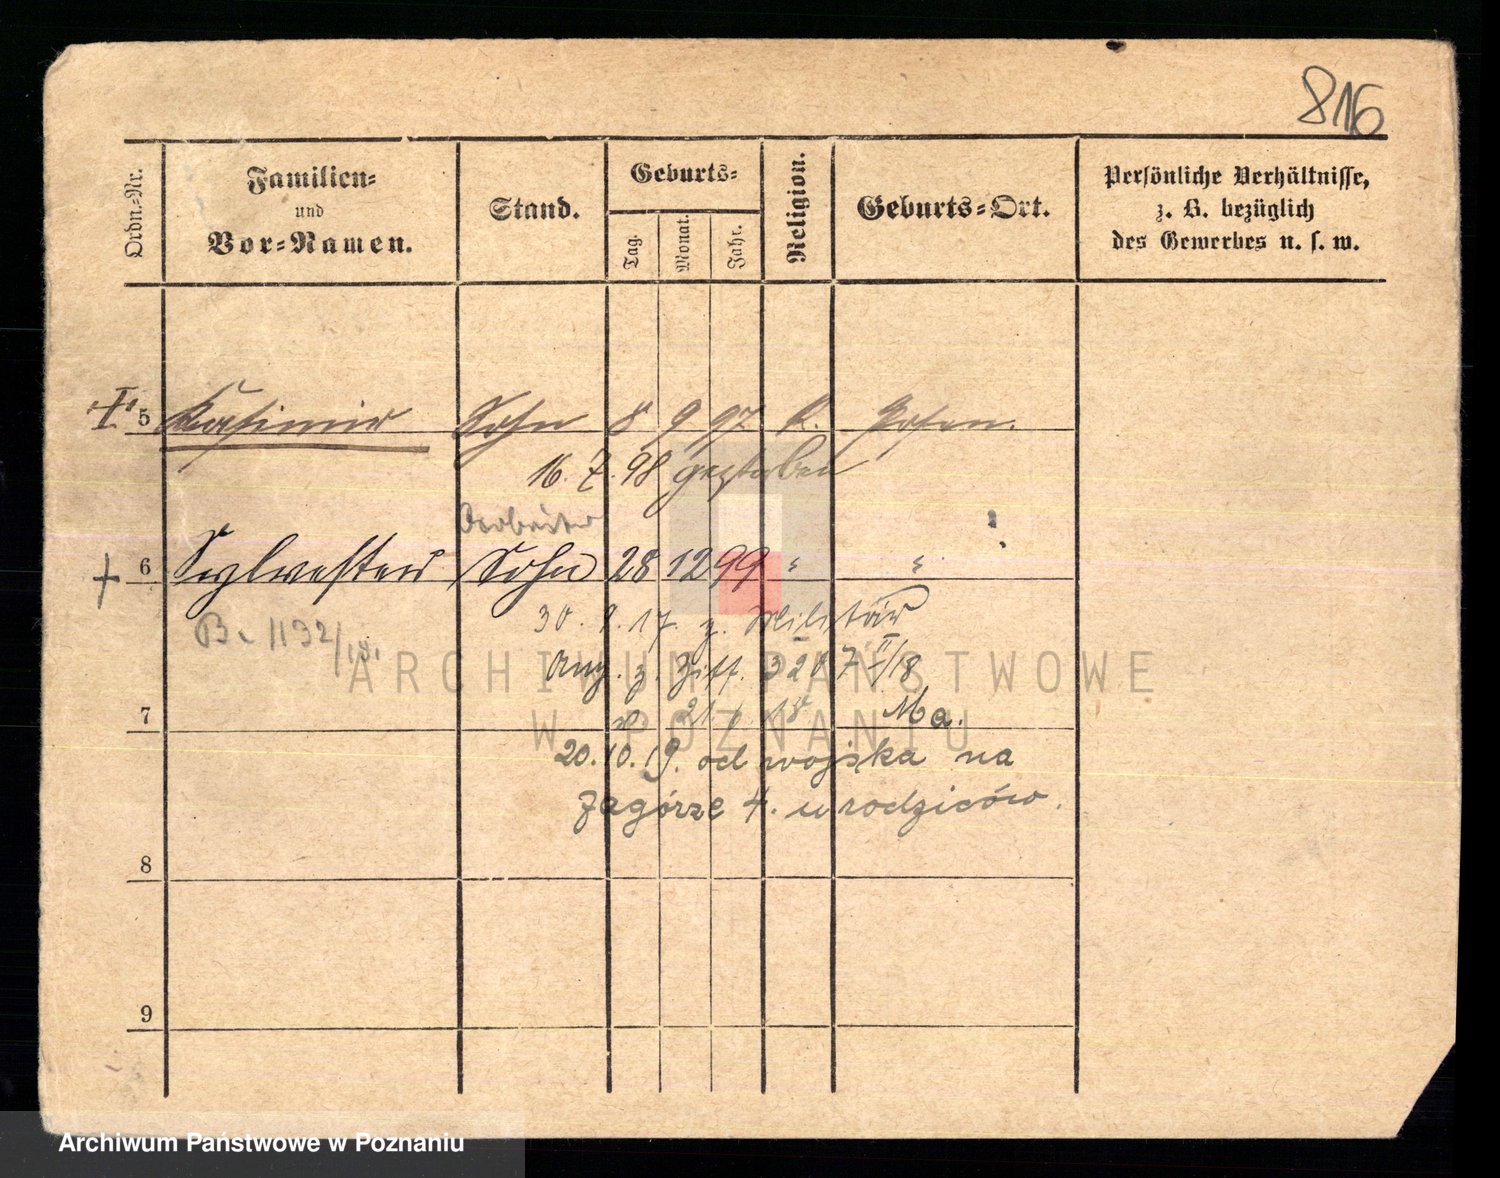 816
Ordn.-Nr.
Familien-
und
Vor-Namen.
Stand.
Geburts-
Tag.
Monat.
Jahr.
Religion.
Geburts-Ort.
Persönliche Verhältnisse,
z. B. bezüglich
des Gewerbes u. s. w.
5 Kasimir Sohn 8 9 97 K. Posen.
16. 7. 98 gestorben
Arbeiter
6 Sylvester Sohn 28 12 99 " "
30. 9. 17. z. Militär
B. 1132/18.
Anz. z. Ziff. 3207 II/18
21. 18 Ma.
7
20. 10. 19. od wojska na
Zagórze 4. u rodziców.
8
9
ARCHIWUM PAŃSTWOWE
W POZNANIU
Archiwum Państwowe w Poznaniu